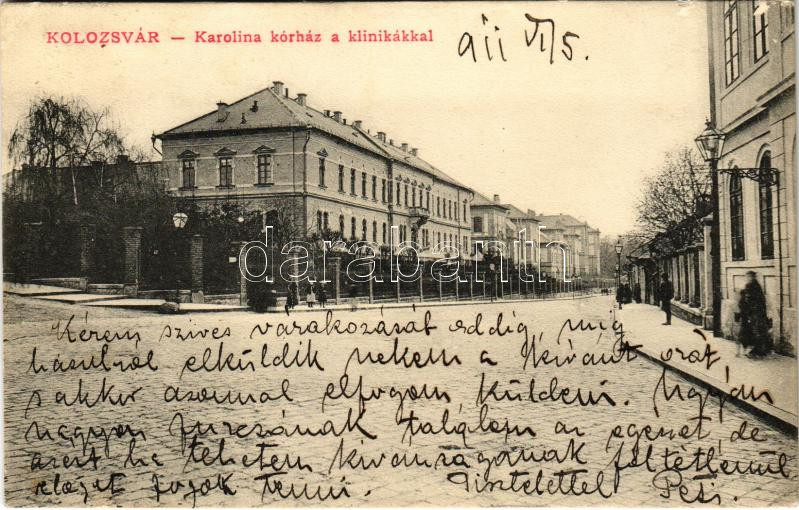 KOLOZSVÁR — Karolina kórház a klinikákkal
911 VI/5.
darabanth
Kérem szives várakozását addig, mig
elküldik nekem a kívánt orát,
akkor azonnal elfogom küldeni. Ugyan
nagyon furcsának találom az egeset, de
azert ha tehetem kivansagának feltétlenül
eleget fogok tenni. Tisztelettel